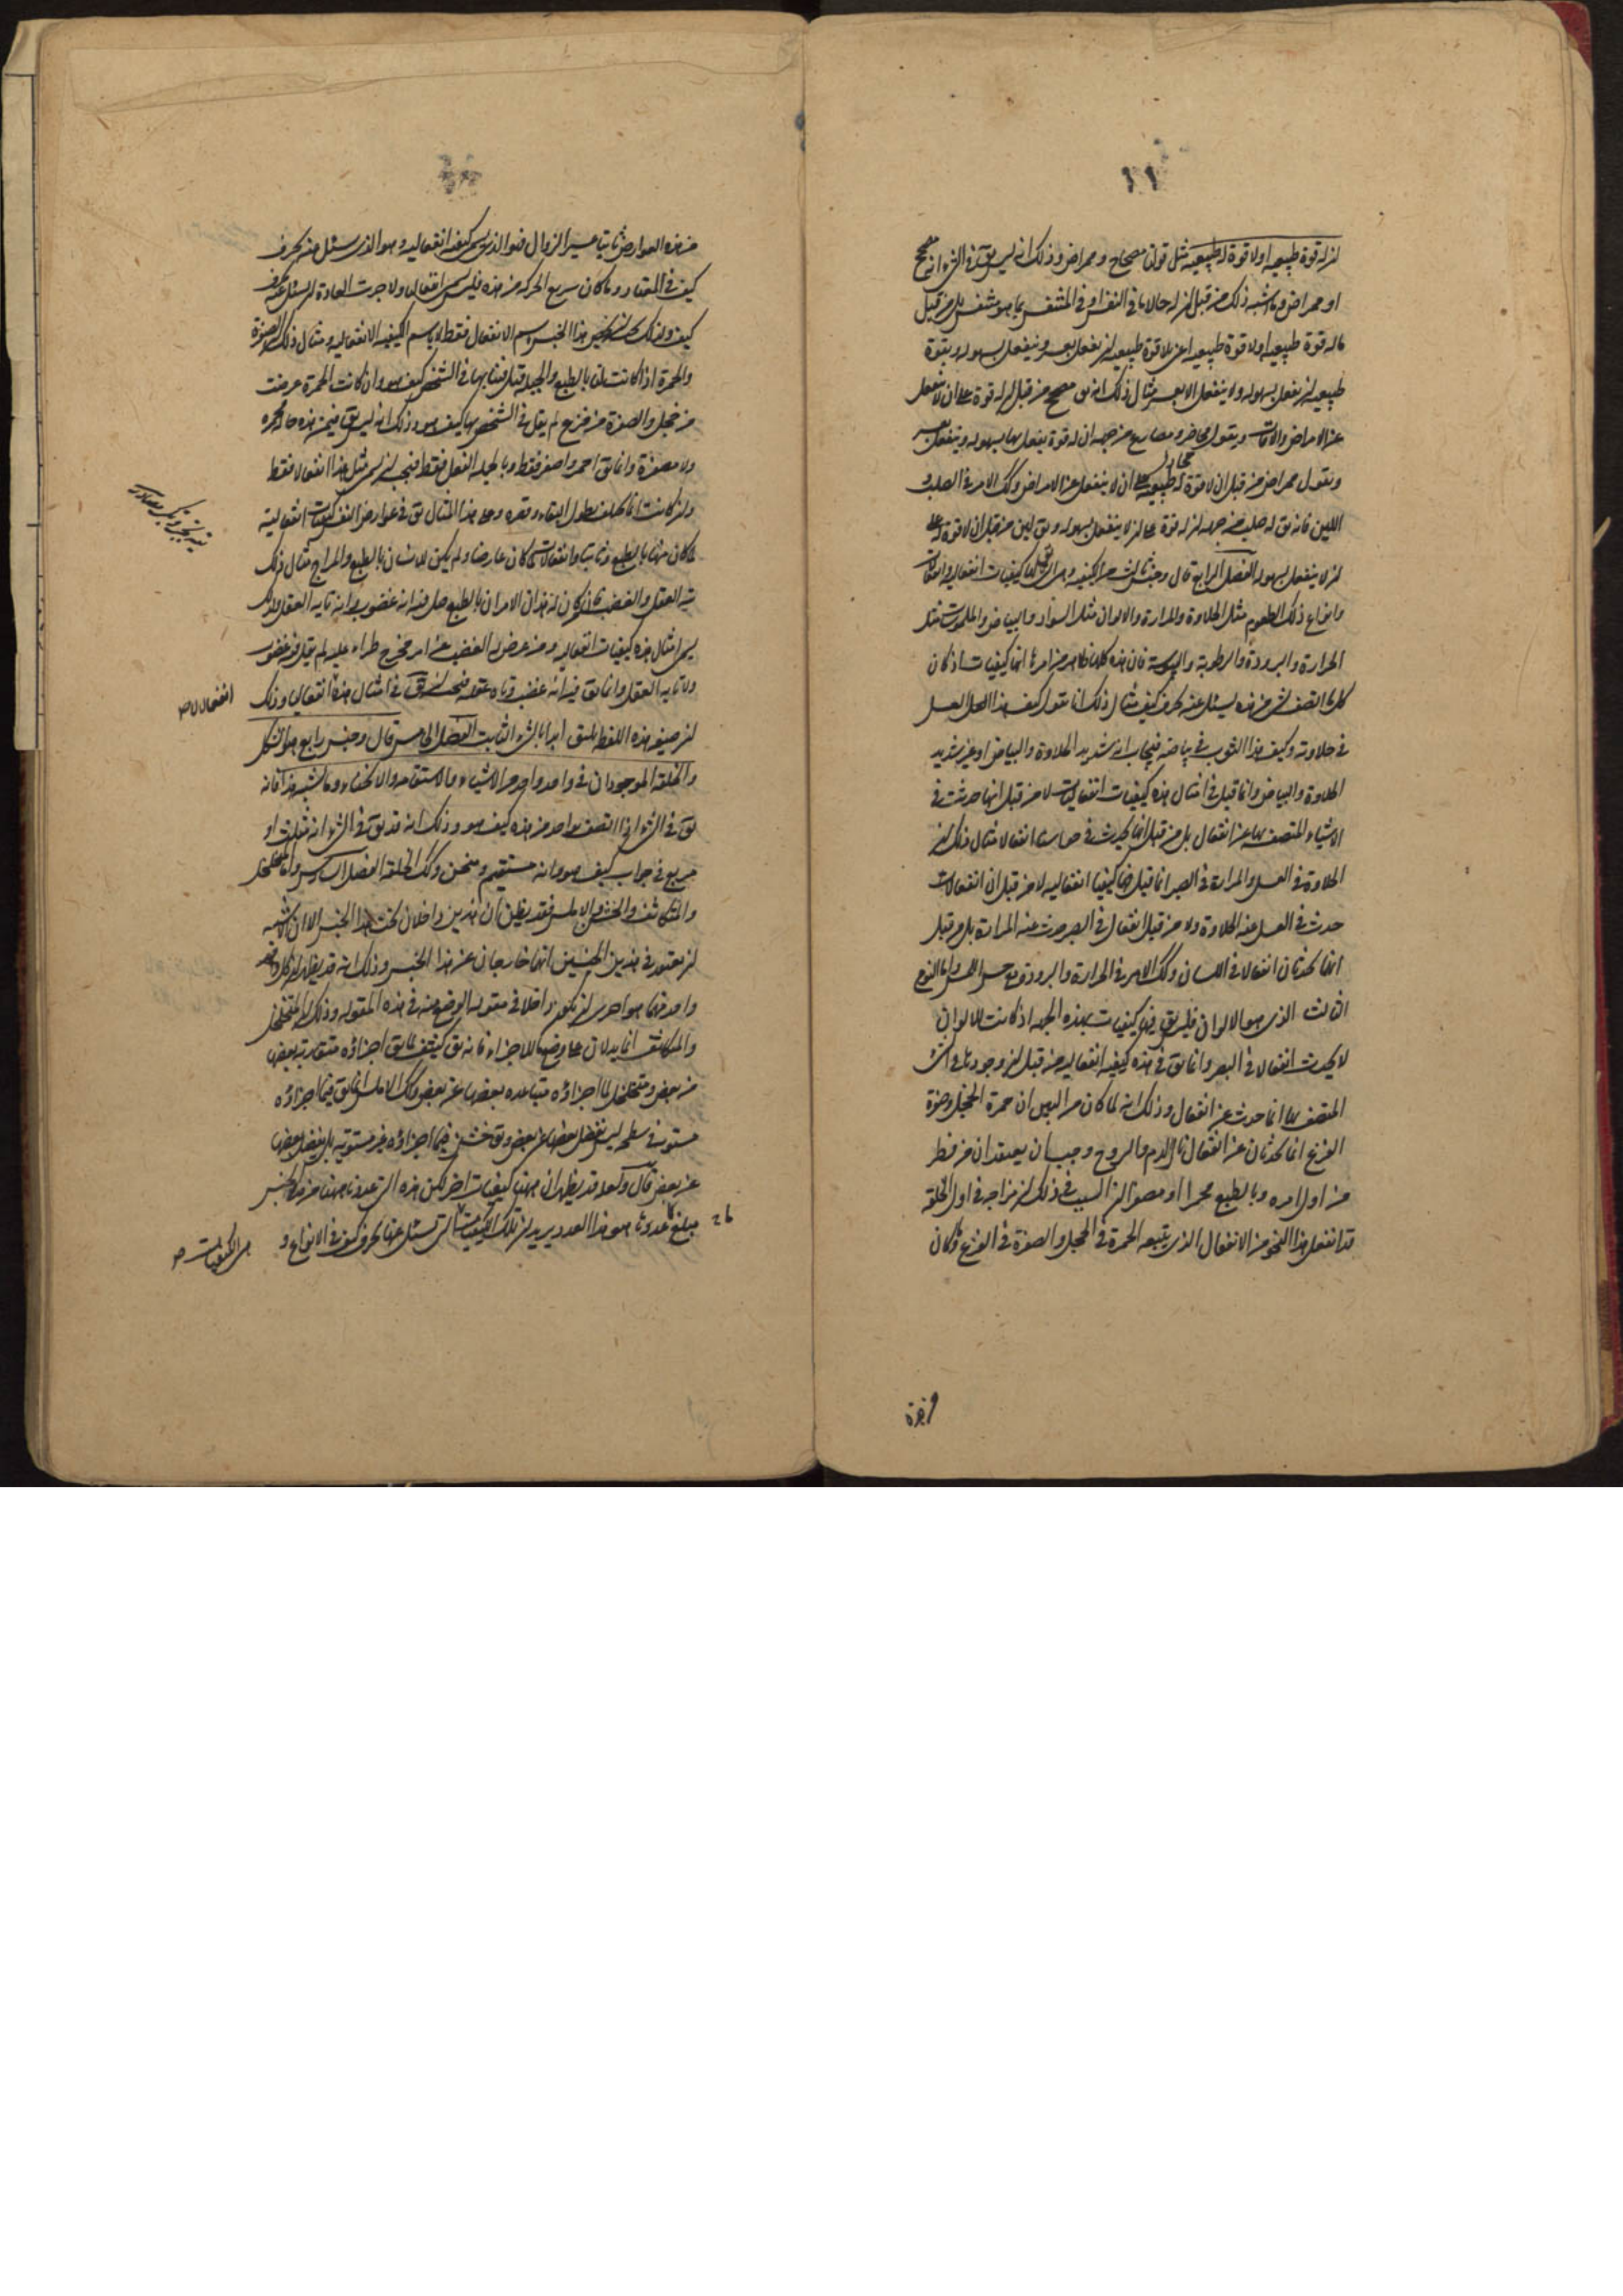 ١١
ان له قوة طبيعية او لا قوة له طبيعية مثل قولنا مصحاح وممراض وذلك انه ليس يق في الشيء انه مصحح
او ممراض وما اشبه ذلك من قبل ان له حالا ما في النفس او في المتنفس بما هو متنفس بل من قبل
ما له قوة طبيعية او لا قوة طبيعية اعني بلا قوة طبيعية ان يفعل بعسر وينفعل بسهولة وبقوة
طبيعية ان يفعل بسهولة ولا ينفعل الا بعسر مثال ذلك انه يق مصحح من قبل ان له قوة على ان لا ينفعل
عن الامراض والآفات ويقول محاضر ومصارع من جهة ان له قوة يفعل بها بسهولة وينفعل بعسر
ونقول ممراض من قبل ان لا قوة له طبيعية على ان لا ينفعل عن الامراض وكك الامر في الصلب و
اللين فانه يق له صلب من جهة ان له قوة على ان لا ينفعل بسهولة ويق لين من قبل ان لا قوة له على
ان لا ينفعل بسهولة الفصل الرابع قال وجنس ثالث من الكيفية وهي التي يق لها كيفيات انفعالية وانفعالات
وانواع ذلك الطعوم مثل الحلاوة والمرارة والالوان مثل السواد والبياض والملموسات مثل
الحرارة والبرودة والرطوبة واليبوسة فان هذه كلها ظاهر من امرها انها كيفيات اذ كان
كل ما اتصف بشيء من هذه يسئل عنه بحرف كيف مثال ذلك انا نقول كيف هذا العسل
في حلاوته وكيف هذا الثوب في بياضه فيجاب انه شديد الحلاوة والبياض او غير شديد
الحلاوة والبياض وانما قيل في امثال هذه كيفيات انفعاليات لا من قبل انها حدثت في
الاشياء المتصف بها عن انفعال بل من قبل انها يحدث في حواسنا انفعالا مثال ذلك ان
الحلاوة في العسل والمرارة في الصبر انما قيل فيها كيفيات انفعالية لا من قبل ان انفعالات
حدث في العسل عنه الحلاوة ولا من قبل انفعال في الصبر حدث عنه المرارة بل من قبل
انها تحدثان انفعالا في اللسان وكك الامر في الحرارة والبرودة مع حس اللمس واما النوع
الثالث الذي هو الالوان فليس يق فيها كيفيات بهذه الجهة اذ كانت الالوان
لا يحدث انفعالا في البصر وانما يق في هذه كيفية انفعالية من قبل ان وجودها في الشيء
المتصف بها انما حدث عن انفعال وذلك انه لما كان من البين ان حمرة الخجل وصفرة
الفزع انما تحدثان عن انفعال نال الدم والروح وجب ان يعتقد ان من فطر
من اول امره وبالطبع محمرا او مصفرا ان السبب في ذلك ان مزاجه في اول الخلقة
قد انفعل هذا النحو من الانفعال الذي يتبعه الحمرة في الخجل والصفرة في الفزع فما كان
من هذه العوارض ثابتا عسير الزوال فهو الذي يسمى كيفية انفعالية وهو الذي يسئل عنه بحرف
كيف في المعتاد وما كان سريع الحركة من هذه فليس يسمى انفعالي ولا جرت العادة ان يسئل عنه بحرف
كيف ولذلك هذا الجنس باسم الانفعال فقط لا باسم الكيفية الانفعالية ومثال ذلك الصفرة
والحمرة اذا كانتا بالطبع والجبلة قيل فيها بها في الشخص كيف هو وان كانت الحمرة عرضت
من خجل والصفرة من فزع لم يقل في الشخص بها كيف هو وذلك انه ليس يق فيمن هذه حاله محمرة
ولا مصفرة وانما يق احمر واصفر فقط وبالجملة انفعل فقط فيجب ان يسمى مثل هذا انفعالا فقط
وعلى هذا المثال يق في عوارض النفس كيفيات انفعالية
لما كان منها بالطبع وثابتا وانفعالات لما كان عارضا ولم يكن للانسان بالطبع والمزاج مثال ذلك
تيه العقل والغضب فان من كان له هذان الامران بالطبع قيل فيه انه غضوب وانه تايه العقل ولذلك
يسمى امثال هذه كيفيات انفعالية ومن عرض له الغضب عن امر محرج طراء عليه لم يقل فيه غضوب
ولا تايه العقل وانما يق فيه انه غضب وتاه عقله فيجب ان يق في امثال هذه انفعاليا وذلك
ان صيغة هذه اللفظ يليق ابدا بالشيء الثابت الفصل الخامس قال وجنس رابع هو الشكل
والخلقة الموجودان في واحد واحد من الاشياء والاستقامة والانحناء وما اشبه هذا فانه
يق في الشيء اذا اتصف بواحد من هذه كيف هو وذلك انه قد يق في الشيء انه مثلث او
مربع في جواب كيف هو وانه مستقيم ومنحن وكك الخلقة الفصل السادس واما المتخلخل
والمتكاثف والخشن والاملس فقد يظن ان هذين داخلان تحت هذا الجنس الا ان الاشبه
ان يعتقد في هذين الجنسين انهما خارجان عن هذا الجنس وذلك انه قد يظهر ان كل واحد
واحد منهما هو احرى ان يكون داخلا في مقولة الوضع منه في هذه المقولة وذلك ان المتخلخل
والمتكاثف انما يدلان على وضع ما للاجزاء فانه يق كثيف لما يق اجزاؤه متقاربة بعضها
من بعض ومتخلخل لما اجزاؤه متباعدة بعضها عن بعض وكك الاملس انما يق فيما اجزاؤه
مستوية في سطحه ليس يفضل بعضها عن بعض ويق خشن فيما اجزاؤه غير مستوية بل يفضل بعضها
عن بعض قال ولعله قد يظهر ان ههنا كيفيات اخر لكن هذه التي عددنا ههنا من هذا الجنس
مبلغ ما عددنا هو هذا العدد يريد ان تلك الكيفيات التي يسئل عنها بحرف كيف في الانواع و
انفعالا ص
هي الكيفيات ص